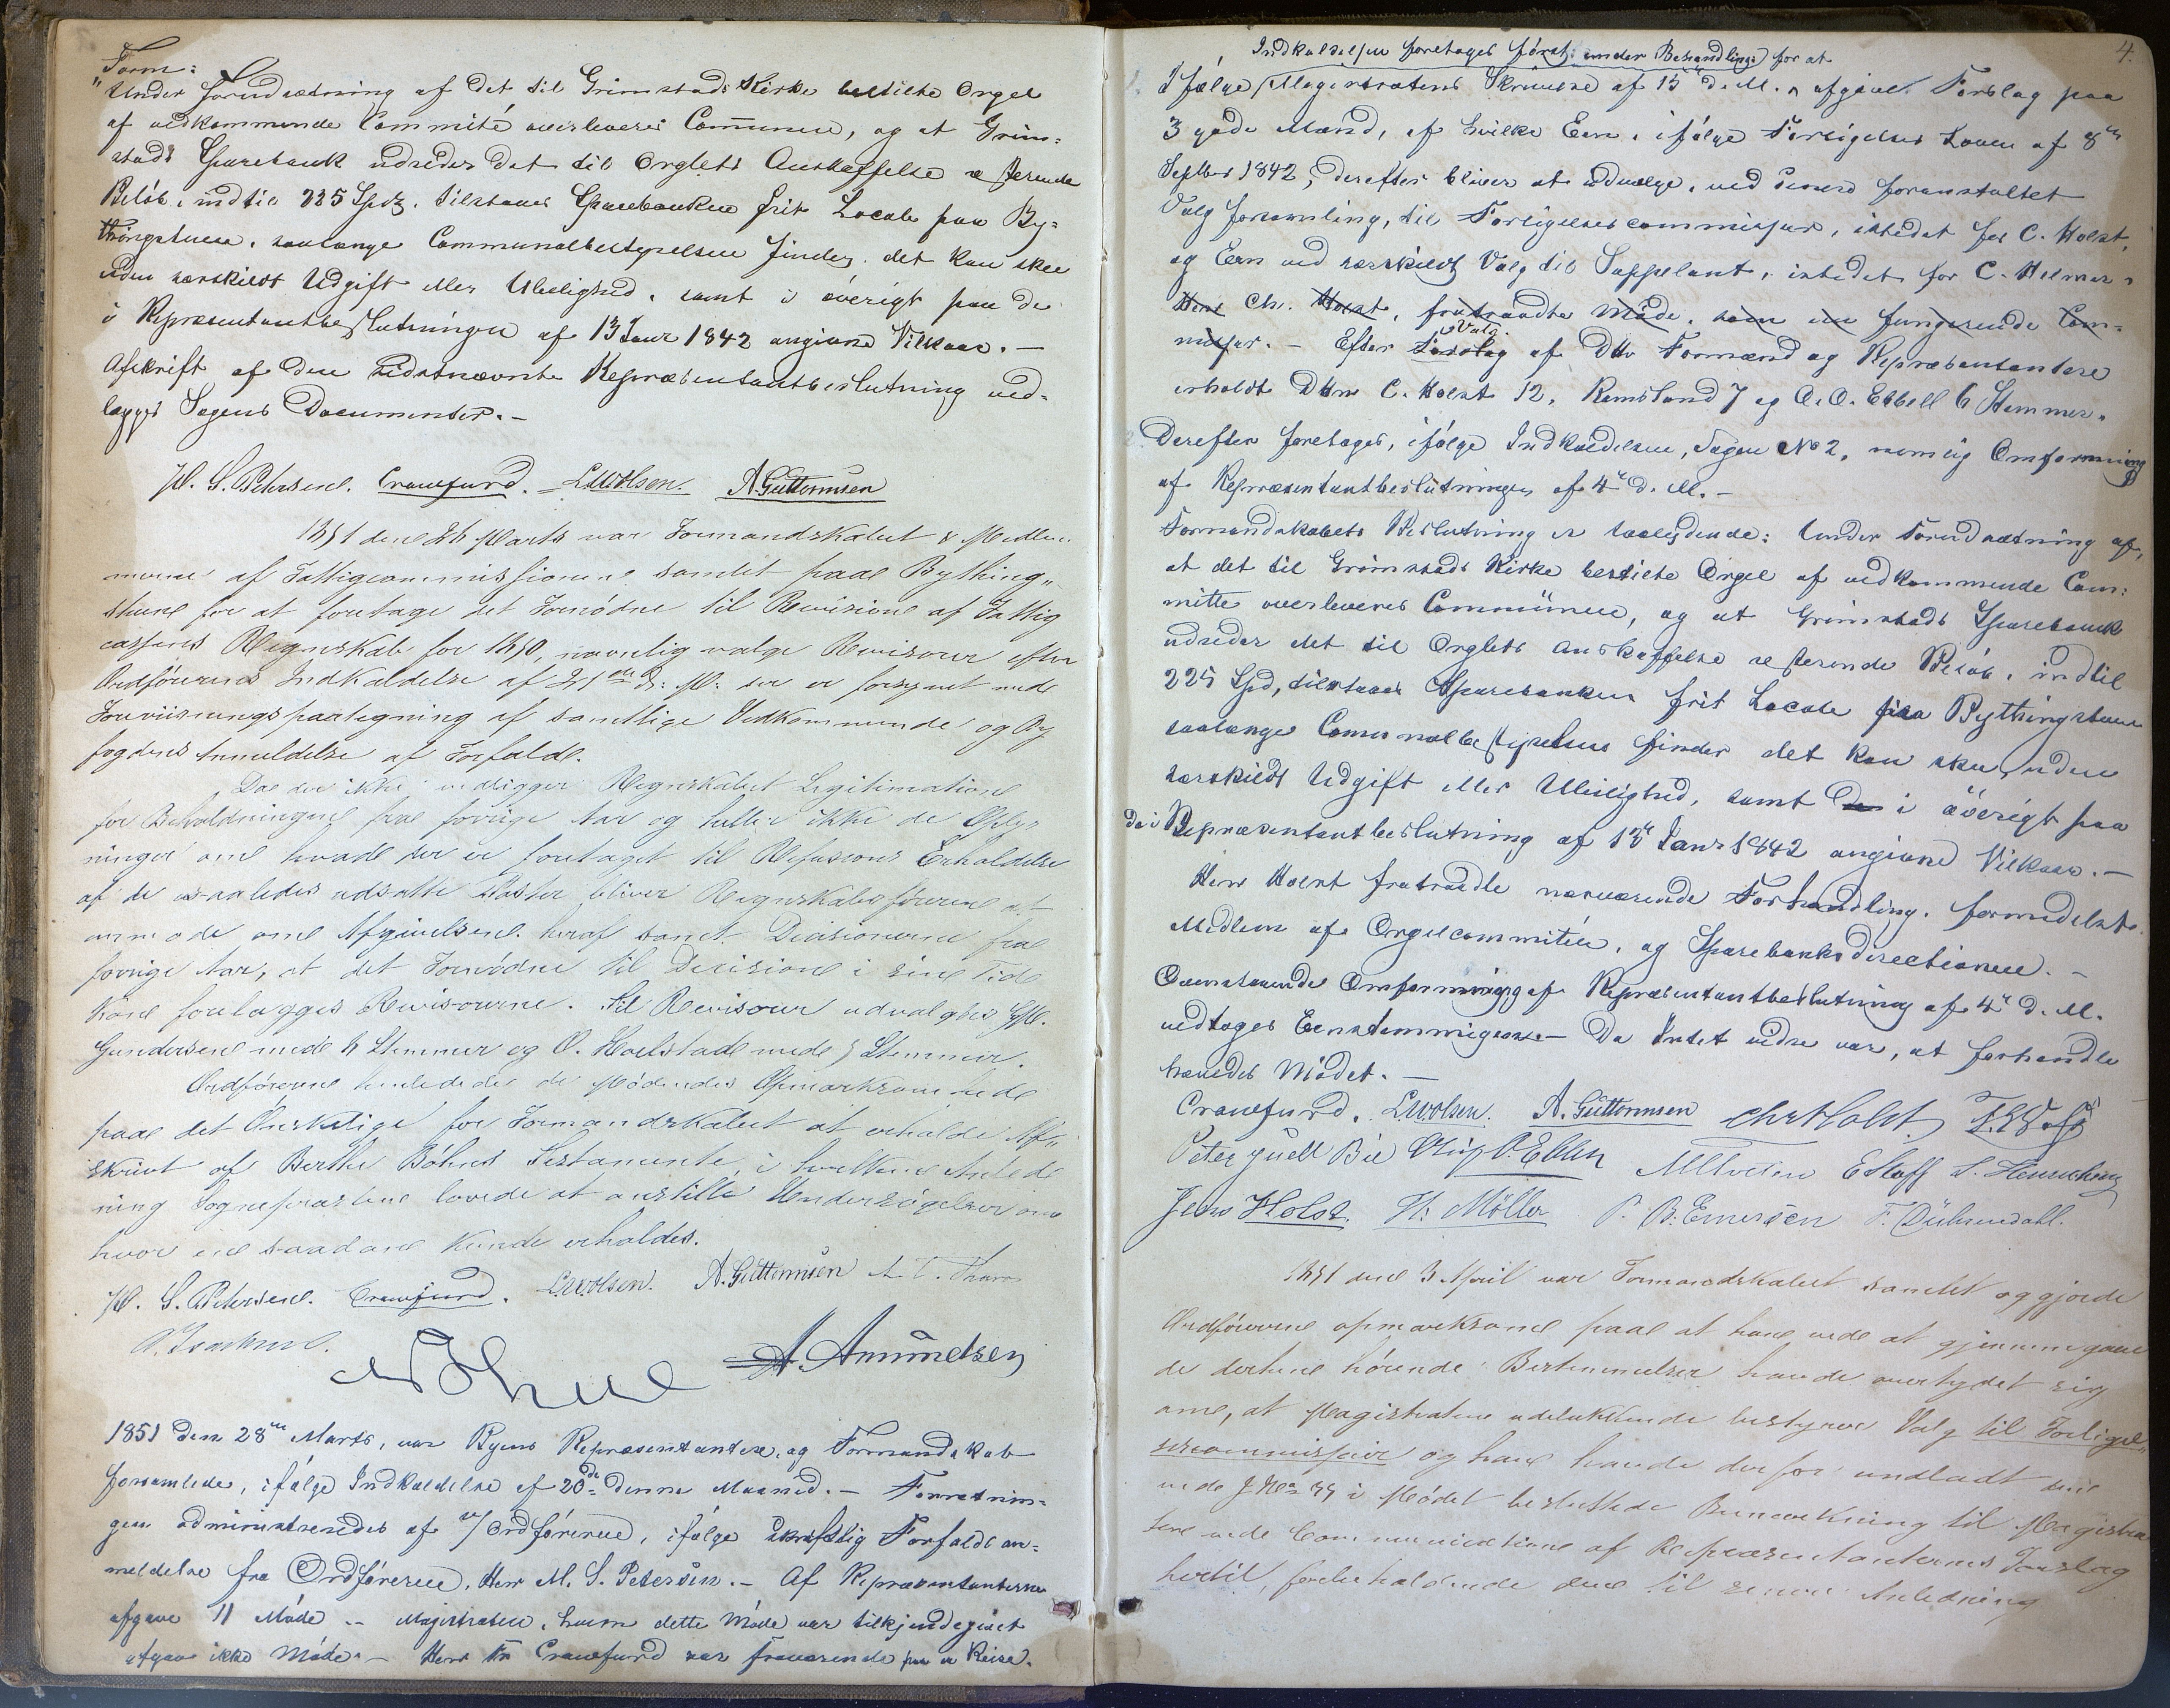 Form:
"Under Forudsætning af det til Grimstads Kirke bestilte Orgel
af vedkommende Committé overleveres Communen, og at Grim=
stads Sparebank udreder det til Orglets Anskaffelse resterende
Beløb, indtil 225 Spd, tilstaaes Sparebanken frit Locale paa By=
thingstuen, saalænge Communalbestyrelsen finder, det kan skee
uden særskildt Udgift eller Uleilighed, samt i øvrigt paa de
i Repræsentantbeslutningen af 13 Janr 1842 angivne Vilkaar. —
Afskrift af den sidstnævnte Repræsentantbeslutning ved=
lægges Sagens Documenter. —
M. S. Petersen. Crawfurd. L Wolsen. A. Guttormsen
1851 den 26 Marts var Formandskabet & Medlem
merne af Fattigcommissionen samlet paa Bything"
stuen for at foretage det Fornødne til Revision af Fattig
cassens Regnskab for 1850, navnlig vælge Revisorer efter
Ordførerens Indkaldelse af 21de d: M: der er forsynet med
Foreviisningspaategning af samtlige Vedkommende og By
fogdens Anmeldelse af Forfald.
Da der ikke vedligger Regnskabet Legitimation
for Beholdningen fra forrige Aar og heller ikke de Oplys
ninger om hvad der er foretaget til Refusions Erholdelse
af de saaledes udsatte Poster bliver Regnskabsføreren at
anmode om Afgivelsen heraf samt Decisionerne fra
forrige Aar, at det Fornødne til Decision i sin Tid
kan forelægges Revisorerne. Til Revisorer udvalgtes
Gundersen med 6 Stemmer og O. Hoelstad med 5 Stemmer.
Ordføreren henledede de Mødendes Opmærksomhed
paa det Ønskelige for Formandskabet at erholde Af=
skrivt af Berthe Bøhns Testamente, i hvilken Anled
ning Sognepræsten lovede at anstille Undersøgelser om
hvor en saadan kunde erholdes.
M. S. Petersen. Crawfurd. L Wolsen. A. Guttormsen
A. Amundsen
1851 den 28de Marts, var Byens Repræsentantere, og Formandskab
forsamlede, ifølge Indkaldelse af 20de denne Maaned. — Forretnin=
gen administreredes af v/Ordføreren, ifølge skriftlig Forfalds an=
meldelse fra Ordføreren, Herr M. S. Petersen. — Af Repræsentanterne
afgave 11 Møde — Magistraten, hvem dette Møde var tilkjendegivet
afgav ikke Møde. — Herr Crawfurd var fraværende paa en Reise.
4.
Indkaldelsen foretoges først: under Behandling: for at
1. Ifølge Magistratens Skrivelse af 15de d. M. afgive Forslag paa
3 gode Mænd, af hvilke Een, ifølge Forligelses Loven af 8de
Septbr 1842, derefter bliver at udvælge, ved senere foranstaltet
Valg forsamling, til Forligelsescommissair, istedet for C. Holst,
og Een ved særskildt Valg til Suppleant, istedet for C. Helmer
Herr Chr. Holst, fratraadte Møde, som en fungerende Com=
missair. — Efter Forslag Valg af DHrr Formænd og Repræsentantere
erholdt DHrr C. Holst 12, Ramsland 7 og O. O. Ebbell 6 Stemmer.
2. Derefter foretoges, ifølge Indkaldelsen, Sagen No 2, nemlig Omformning
af Repræsentantbeslutningen af 4de d. M. —
Formandskabets Beslutning er saalydende: Under Forudsætning af,
at det til Grimstads Kirke bestilte Orgel af vedkommende Com:
mitte overleveres Communen, og at Grimstads Sparebank
udreder det til Orglets Anskaffelse resterende Beløb, indtil
225 Spd, tilstaaes Sparebanken frit Locale paa Bythingstuen
saalænge Communalbestyrelsen finder det kan skee, uden
særskildt Udgift eller Uleilighed, samt de i øvrigt paa
de i Repræsentantbeslutning af 13de Janr 1842 angivne Vilkaar. —
Herr Holst fratraadte nærværende Forhandling, formedelst
Medlem af Orgelcommitéen, og Sparebanksdirectionen. —
Ovenstaaende Omformning af Repræsentantbeslutning af 4de d. M.
vedtoges Eenstemmigen — Da Intet videre var, at forhandle
hævedes Mødet. —
Crawfurd. L Wolsen. A. Guttormsen Chr Holst
Peter Juell Bie O. Ebbell E Staff S. Henrichsen
Jens Holst. H: Møller P. B. Emersen F. Dührendahl.
1851 den 3 April var Formandskabet samlet og gjorde
Ordføreren opmærksom paa at han ved at gjennemgaae
de dertil hørende Bestemmelser havde overtydet sig
om, at Magistraten udelukkende bestyrer Valg til Forligel=
sescommissair og han havde derfor undladt den
under i Mødet besluttede Bemærkning til Magistra
ten ved Communication af Repræsentanternes Forslag
hertil, forbeholdende den til senere Anledning